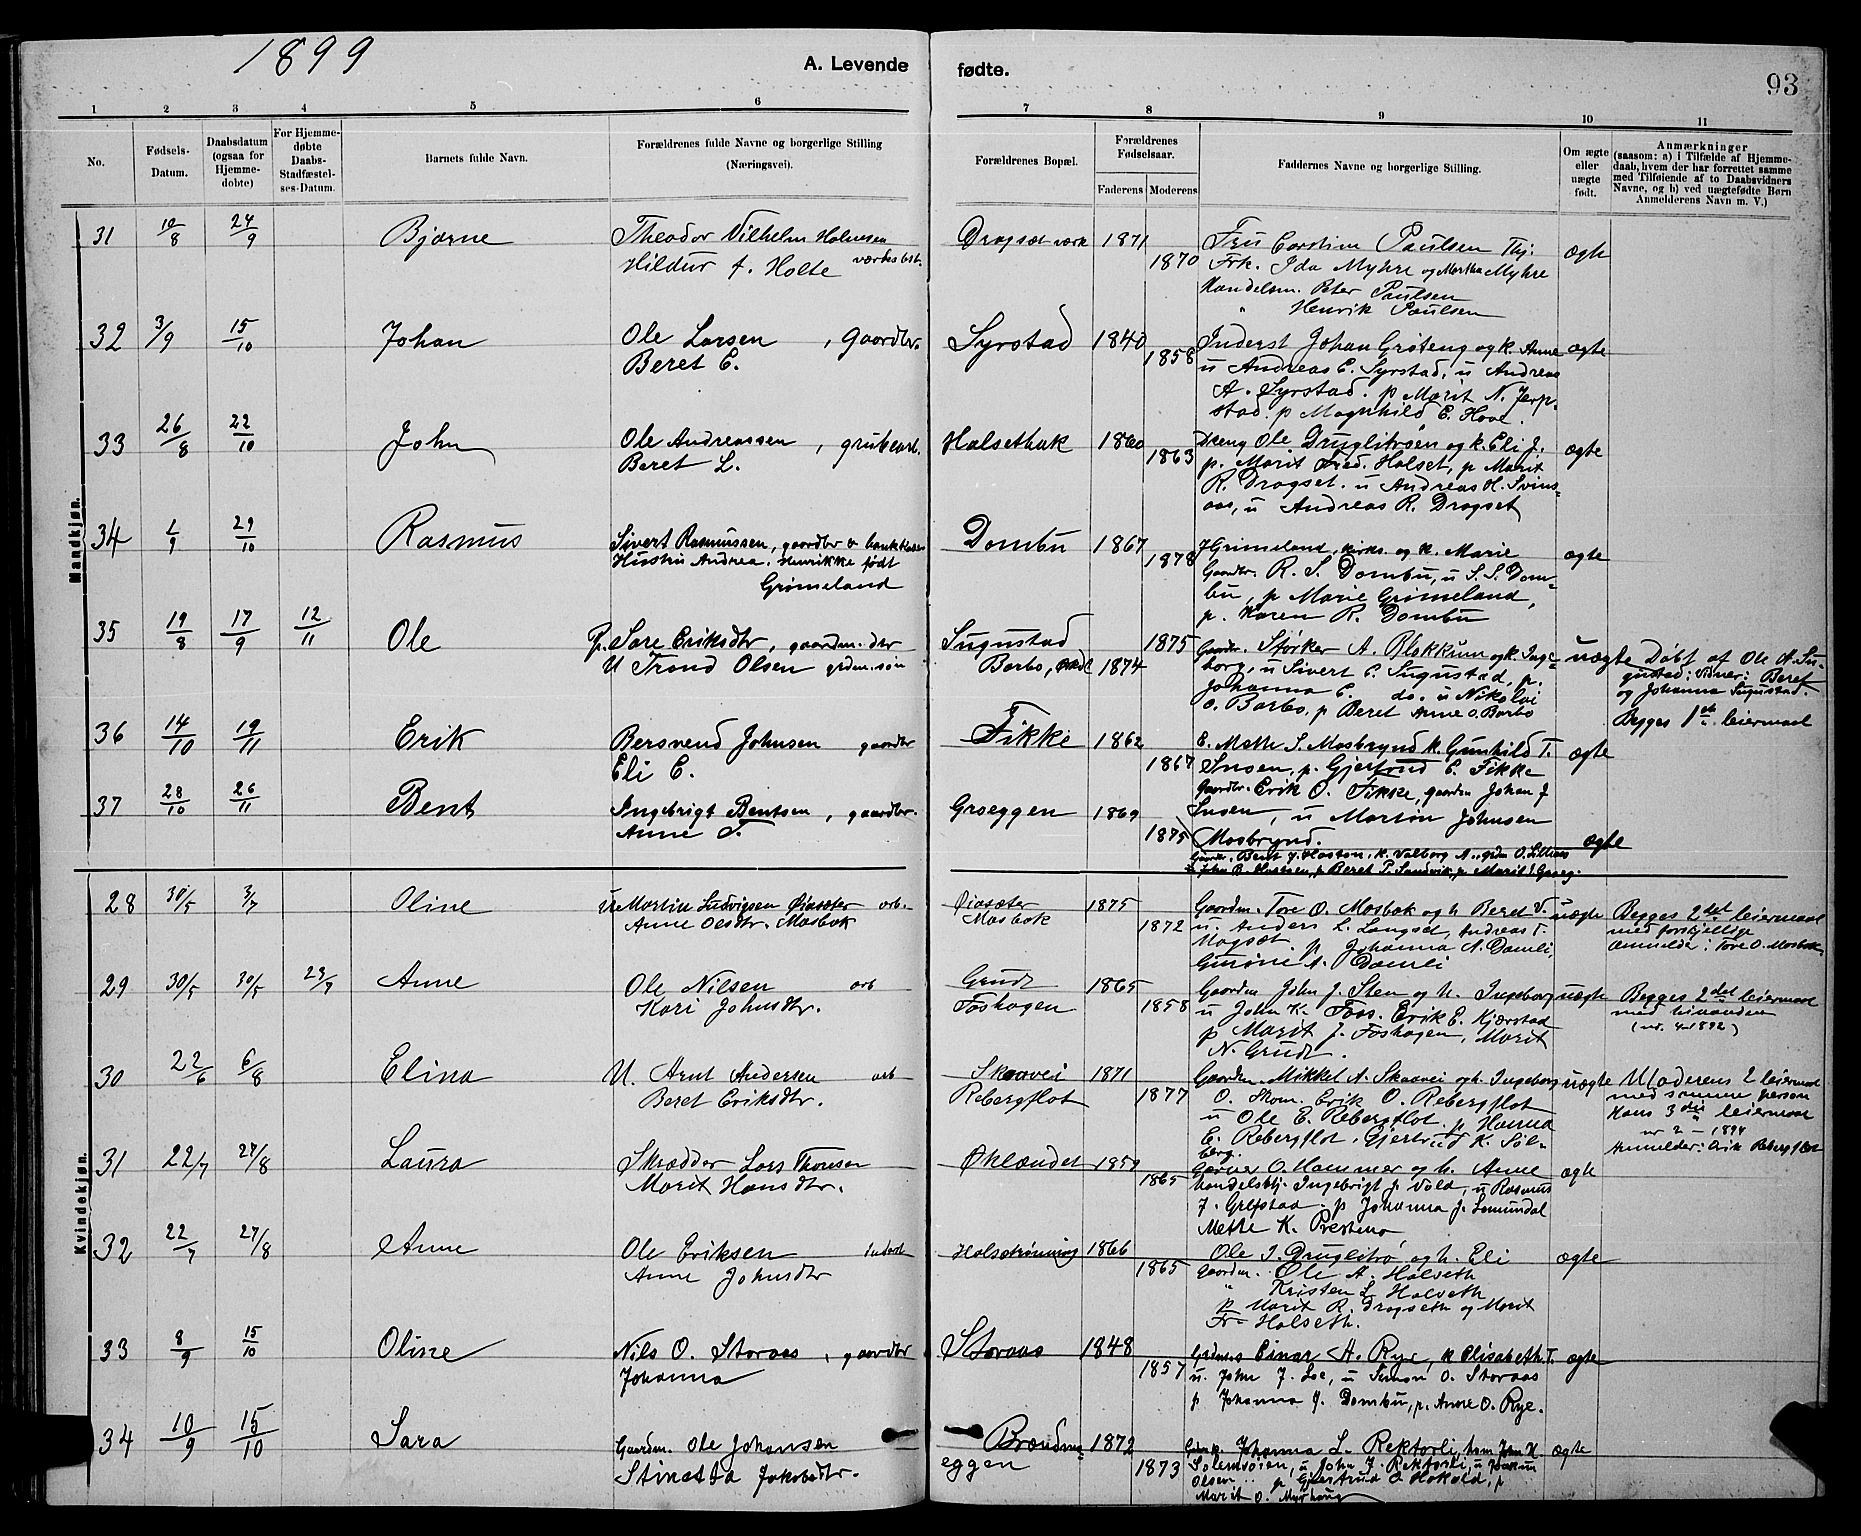 1899
A. Levende fødte.
93
1 2 3 4 5 6 7 8 9 10 11
No.
Fødsels-
Datum.
Daabsdatum
(ogsaa for
Hjemme-
døbte)
For Hjemme-
døbte
Daabs-
Stadfæstel-
ses-Datum.
Barnets fulde Navn.
Forældrenes fulde Navne og borgerlige Stilling
(Næringsvei).
Forældrenes Bopæl.
Forældrenes
Fødselsaar.
Faderens Moderens
Faddernes Navne og borgerlige Stilling.
Om ægte
eller
uægte
født.
Anmærkninger
(saasom: a) i Tilfælde af Hjemme-
daab, hvem der har forrettet samme
med Tilføiende af to Daabsvidners
Navne, og b) ved uægtefødte Børn
Anmelderens Navn m. V.)
Mandkjøn.
31 10/8 24/9 Bjarne
Theodor Vilhelm Halvesen
Hildur f. Holte
Dragset værk 1871
1870
Fru Carstine Paulsen Thj.
Frk. Ida Myhre og Martha Myhre
Handelsm. Peter Paulsen
" Henrik Paulsen
ægte
32 3/9 15/10 Johan
Ole Larsen , Gaardbr.
Beret E.
Syrstad 1840
1858
Inderst Johan Grøteng og k. Anne
u Andreas E. Syrstad, u Andreas
A. Syrstad. p Marit N. Jerp-
stad. p Magnhild E. Hove.
ægte
33 26/8 22/10 John
Ole Andreassen , grubearb.
Beret L.
Halsetbak 1860
1863
Ole Druglitrøen og k. Eli J.
p. Marit Fred. Halset, p Marit
R. Dragset. u Andreas H. Svins-
aas, u Andreas R. Dragset
ægte
34 1/9 29/10 Rasmus
Sivert Rasmussen, gaardbr &
Hustru Andrea Henrikke født
Grimeland
Dombu 1867
1878
J Grimeland, kirks. og k. Marie
Gaardbr. R. S. Dombu, u S. S. Dom-
bu, p Marie Grimeland,
p. Karen R. Dombu
ægte
35 19/8 17/9 12/11 Ole
P. Sare Eriksdtr, gaardm. dtr
U Trond Olsen grdm. søn
Sugustad
Barbo,
1875
1874
Gaardbr. Størker A. Blokkum og k. Inge-
borg, u Sivert E. Sugustad, p.
Johanna E. do. u Nikolai
O. Barbo, p Beret Anne O. Barbo
uægte
Døbt af Ole A. Su-
gustad: Vidner: Beret
og Johanna Sugustad.
Begges 1ste leiermaal
36 14/10 19/11 Erik
Bersvend Johnsen gaardbr
Eli E.
Fikke 1862
1867
E. Mette S. Mosbrynd k. Gunhild T.
Snoen, p. Gjertrud E. Fikke
Gaardbr. Erik O. Fikke, gaardm Johan J
Snoen, u Martin Johnsen
Mosbrynd.
ægte
37 28/10 26/11 Bent
Ingebrigt Bentsen , gaardbr.
Anne T.
Groeggen 1869
1875
Gaardbr. Bent J. Haston, k. Valborg A.
p Beret P. Sandvik, p Marit
ægte
Kvindekjøn.
28 30/5 3/7 Oline
Martin Ludvigsen Øiasæter arb.
Anne Olsdtr. Mosbak
Øiasæter
Mosbak
1875
1872
Gaardm. Tore O. Mosbak og h. Beret V.
u. Anders L. Langset, Andreas T.
p Johanna A. Damli,
Gurine A. Damli
uægte
Begges 2det leiermaal
med forskjellige
anmelder: Tore O. Mosbak
29 30/5 30/5 23/7 Anne
Ole Nilsen arb
Kari Johnsdtr.
Grudt
Foshagen
1865
1858
Gaardm John J. Sten og h. Ingeborg
u John K. Foss. Erik E. Kjørstad
p Marit J. Foshagen, Marit
N. Grudt.
uægte
Begges 2det leiermaal
med hinanden
(nr. 4 1892)
30 22/6 6/8 Elina
U. Arnt Andersen arb
Beret Eriksdtr.
Skaavei
Rebergflot
1871
1877
Gaardm. Mikkel A. Skaavei og h. Ingeborg
O. Erik O. Rebergflot
u Ole E. Rebergflot. p Hanna
E. Rebergflot, Gjertrud K. Søl-
berg.
uægte
Moderens 2 leiermaal
med samme person
Hans 3die leiermaal
nr 2 - 1894
Anmelder: Erik Rebergflot
31 22/7 27/8 Laura
Skrædder Lars Thoresen
Marit Hansdtr.
Øklandet 1859
1865
Garver O. Hammer og h. Anne
handelsbtj. Ingebrigt J. Vold, u Rasmus
J. Grefstad p Johanna J. Lomundal
Mette K. Prestmo
ægte
32 22/7 27/8 Anne
Ole Eriksen Inderst
Anne Johnsdtr
1866
1865
Ole I. Druglitrø og h. Eli
Gaardm. Ole A. Halseth
" Kristen L. Halseth
p Marit R. Dragseth og Marit
Fr. Halseth.
ægte
33 8/9 15/10 Oline
Nils O. Storaas , gaardbr
Johanna
Storaas 1848
1857
Einar H. Rye, k Elisabeth T.
u. John J. Loe, u Simon O. Storaas
p Johanna J. Dombu, p. Anne O. Rye.
ægte
34 10/9 15/10 Sara
Gaardm. Ole Johansen
Stinetta Jakobsdtr.
Brændmo-
eggen
1872
1873
Johanna L. Rektorli,
Solemsøien, u John J. Rektorli, u
Olsen p Gjertrud O Hokold, p
Marit O. Myrhaug
ægte